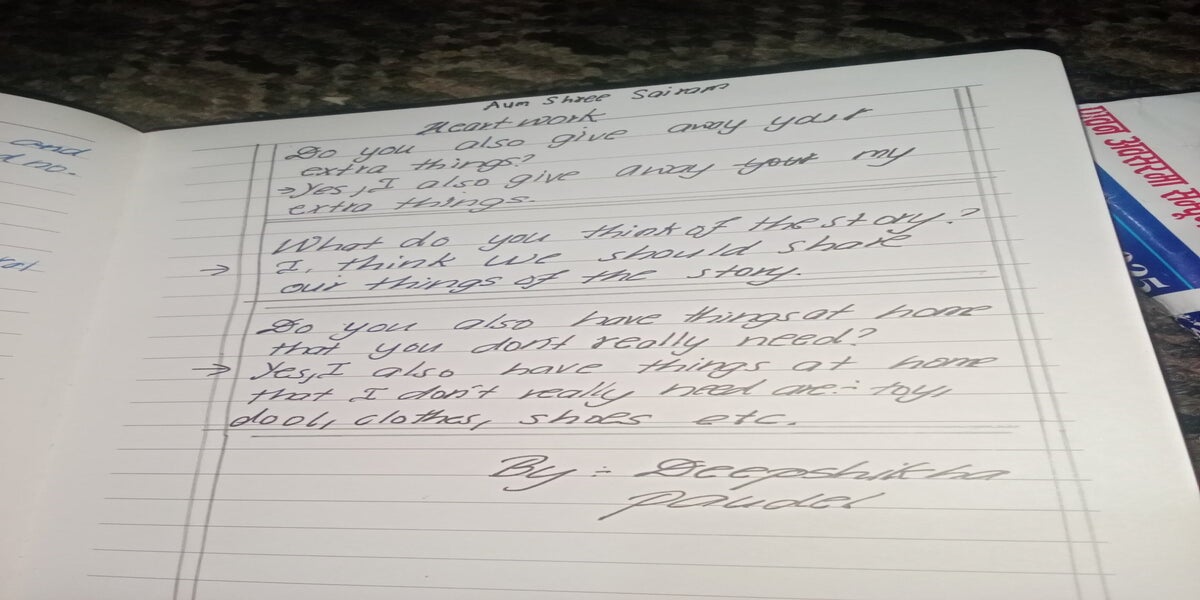 Aum Shree Sairam
Heart work
Do you also give away your
extra things?
→ Yes, I also give away your my
extra things.
What do you think of the story.?
→ I, think we should share
our things of the story.
Do you also have things at home
that you don't really need?
→ Yes, I also have things at home
that I don't really need are:- toy,
dool, clothes, shoes etc.
By :- Deepshikha
Paudel
and
d.no.